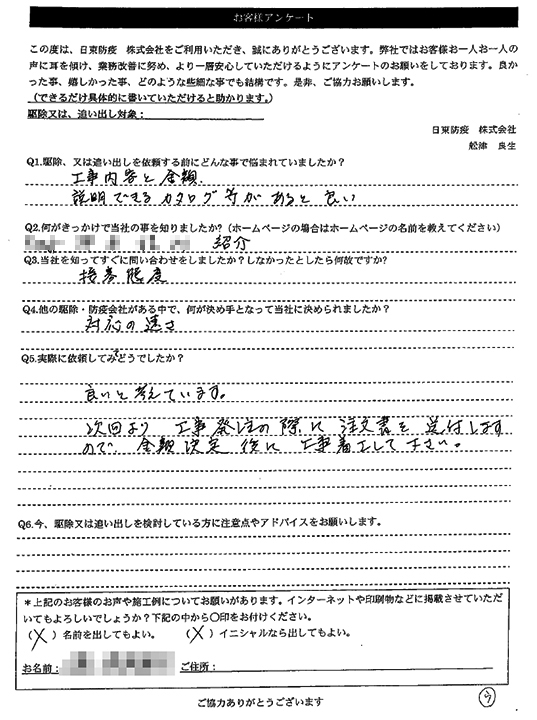 お客様アンケート
この度は、日東防疫 株式会社をご利用いただき、誠にありがとうございます。弊社ではお客様お一人お一人の
声に耳を傾け、業務改善に努め、より一層安心していただけるようにアンケートのお願いをしております。良か
った事、嬉しかった事、どのような些細な事でも結構です。是非、ご協力お願いします。
(できるだけ具体的に書いていただけると助かります。)
駆除又は、追い出し対象:
日東防疫 株式会社
舩津 良生
Q1.駆除、又は追い出しを依頼する前にどんな事で悩まれていましたか?
工事内容と金額.
説明できるカタログ等があると良い
Q2.何がきっかけで当社の事を知りましたか?(ホームページの場合はホームページの名前を教えてください)
紹介
Q3.当社を知ってすぐに問い合わせをしましたか?しなかったとしたら何故ですか?
接客態度
Q4.他の駆除・防疫会社がある中で、何が決め手となって当社に決められましたか?
対応の速さ
Q5.実際に依頼してみどうでしたか?
良いと考えています。
次回より 工事発注の際に 注文書を 送付します
ので 金額決定 後に 工事着工して下さい。
Q6.今、駆除又は追い出しを検討している方に注意点やアドバイスをお願いします。
*上記のお客様のお声や施工例についてお願いがあります。インターネットや印刷物などに掲載させていただ
いてもよろしいでしょうか?下記の中から○印をお付けください。
(X)名前を出してもよい。 (X)イニシャルなら出してもよい。
お名前: ご住所:
ご協力ありがとうございます